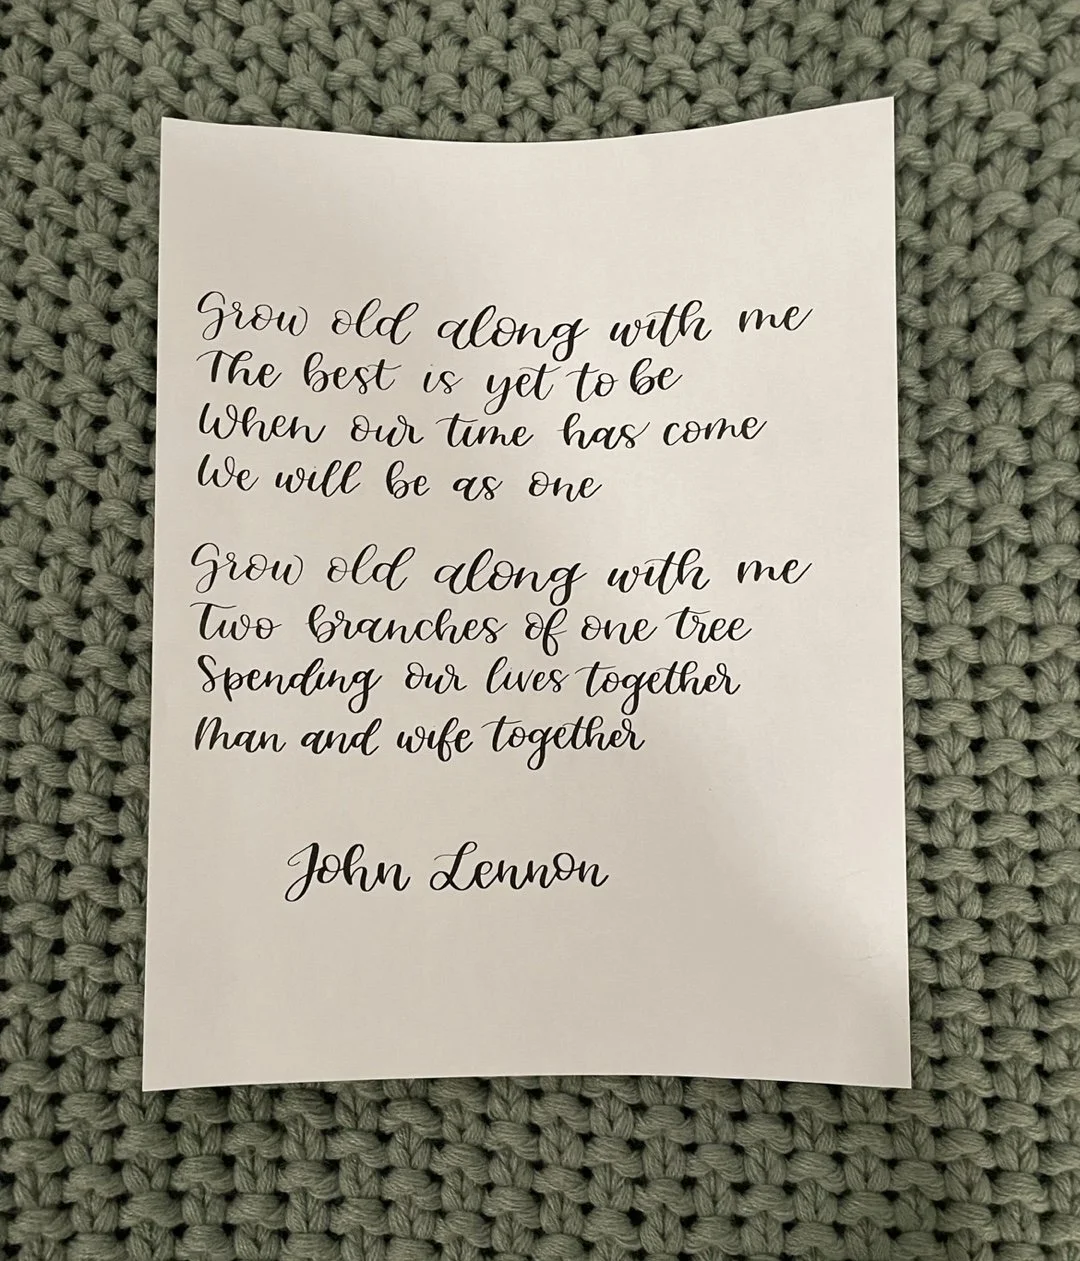 Grow old along with me
The best is yet to be
When our time has come
We will be as one
Grow old along with me
Two branches of one tree
Spending our lives together
Man and wife together
John Lennon